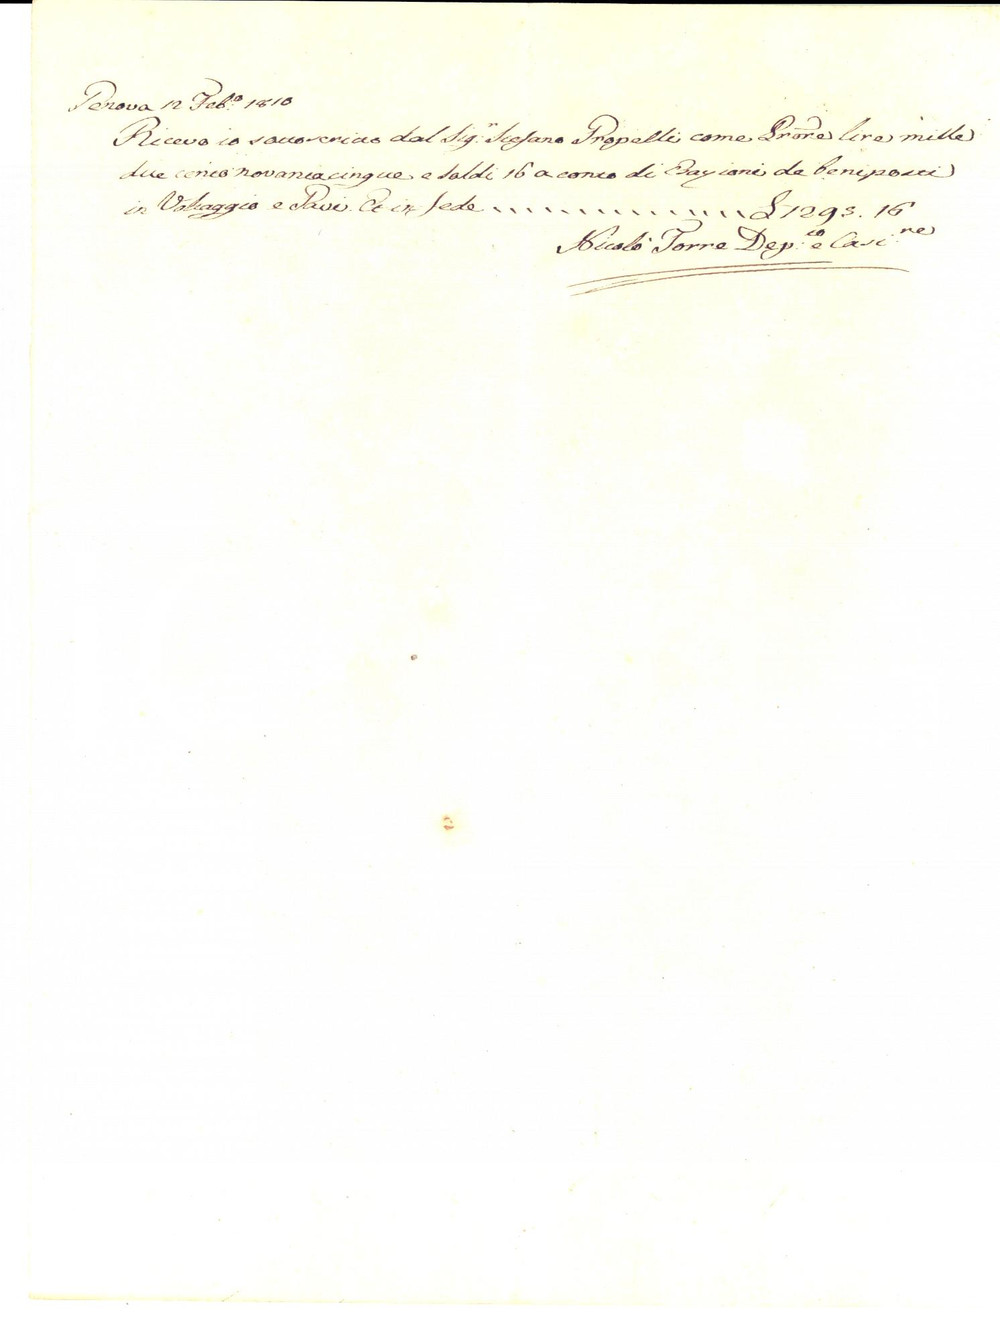 Genova 12 Feb.º 1810
Ricevo io sottoscritto dal Sig.r Stefano Propelli come Prõre lire mille
due cento novantacinque e soldi 16 a conto di Razioni da beni posti
in Voltaggio e Gavi. Et in fede ............ £ 1295. 16
Nicolò Torre Dep.to e Cass.re